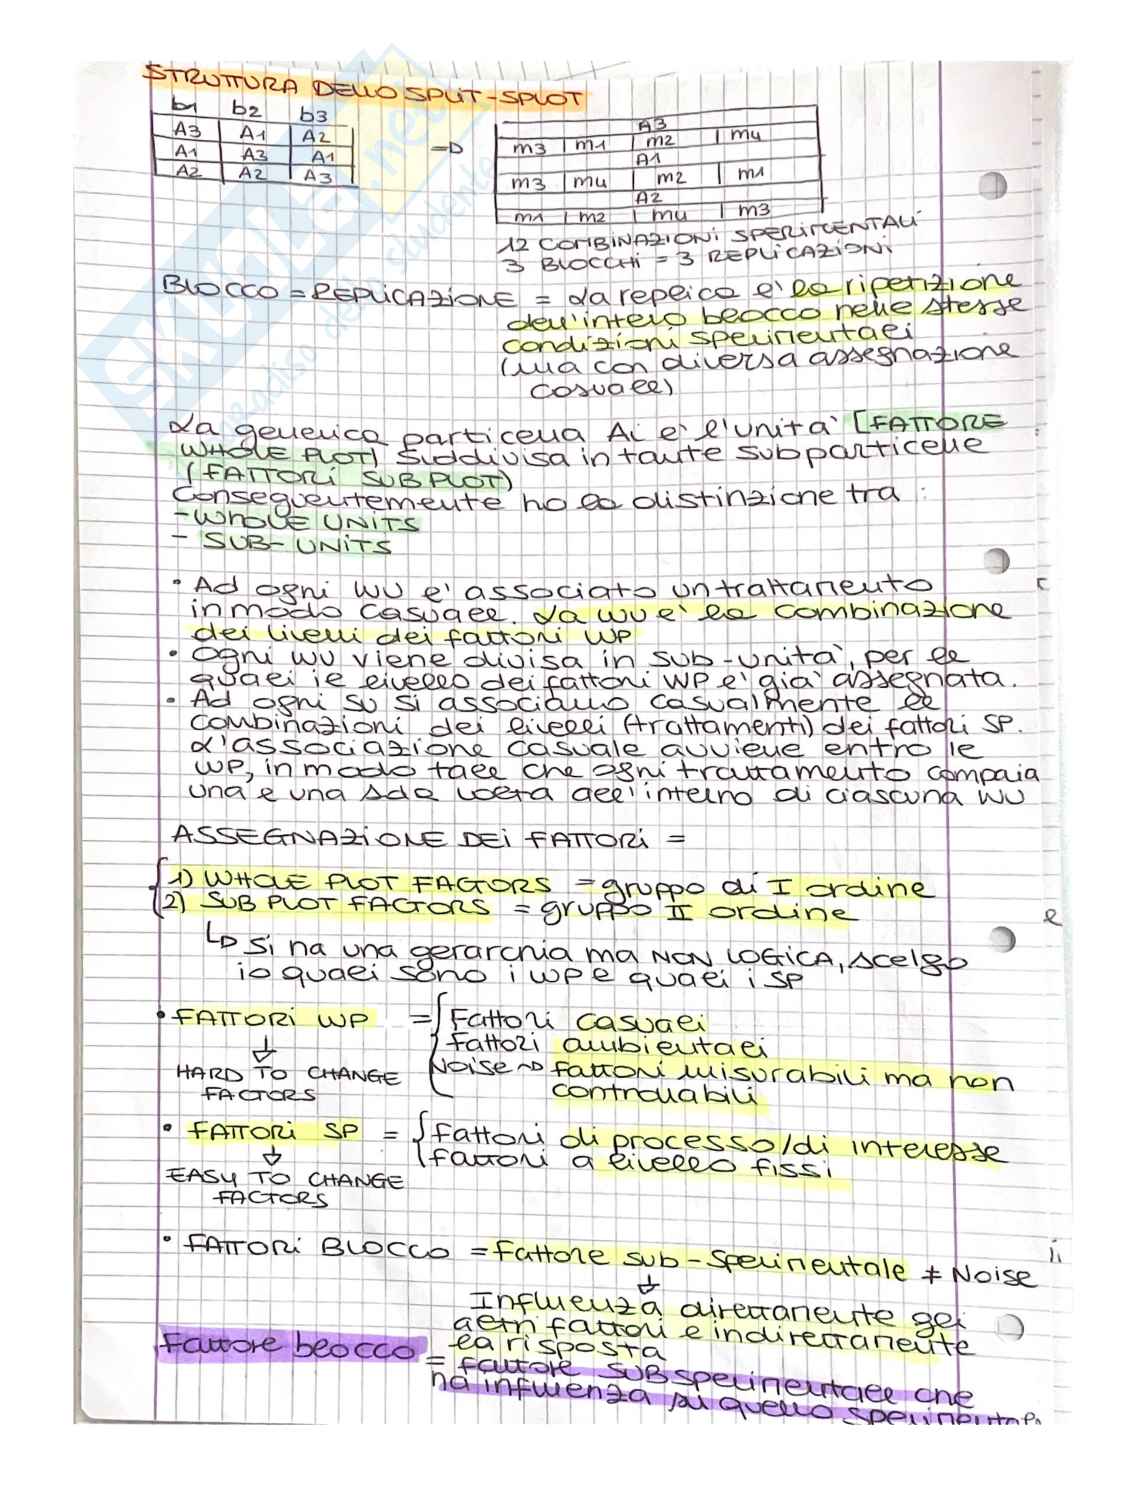 STRUTTURA DELLO SPLIT-SPLOT
b1 b2 b3
A3 A1 A2
A1 A3 A1
A2 A2 A3
=D
A3
m3 m1 m2 m4
A1
m3 m4 m2 m1
A2
m1 m2 m4 m3
12 COMBINAZIONI SPERIMENTALI
3 BLOCCHI = 3 REPLICAZIONI
BLOCCO = REPLICAZIONE = La replica e' la ripetizione
dell'intero blocco nelle stesse
condizioni sperimentali
(ma con diversa assegnazione
casuale)
La generica particella Ai e' l'unita' [FATTORE
WHOLE PLOT) suddivisa in tante subparticelle
(FATTORI SUBPLOT)
Conseguentemente ho la distinzione tra :
- WHOLE UNITS
- SUB-UNITS
• Ad ogni WU e' associato un trattamento
in modo casuale. La WU e' la combinazione
dei livelli dei fattori WP
• Ogni WU viene divisa in sub-unita', per le
quali il livello dei fattori WP e' gia' assegnata.
• Ad ogni SU si associano casualmente le
combinazioni dei livelli (trattamenti) dei fattori SP.
L'associazione casuale avviene entro le
WP, in modo tale che ogni trattamento compaia
una e una sola volta all'interno di ciascuna WU
ASSEGNAZIONE DEI FATTORI =
1) WHOLE PLOT FACTORS = gruppo di I ordine
2) SUB PLOT FACTORS = gruppo II ordine
Si ha una gerarchia ma NON LOGICA, scelgo
io quali sono i WP e quali i SP
• FATTORI WP = Fattori casuali
fattori ambientali
Noise fattori misurabili ma non
controllabili
HARD TO CHANGE
FACTORS
• FATTORI SP = fattori di processo/di interesse
fattori a livello fissi
EASY TO CHANGE
FACTORS
• FATTORI BLOCCO = Fattore sub-sperimentale ≠ Noise
Influenza direttamente gli
altri fattori e indirettamente
la risposta
Fattore blocco = fattore SUBsperimentale che
ha influenza su quello sperimentale